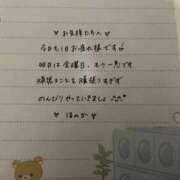 ♥ お気持ちさん ♥
今日も1日お疲れ様です♡
明日は金曜日、もう一息です
頑張ることも頑張りすぎず
のんびりやっていきましょ
♥ ほのか ♥